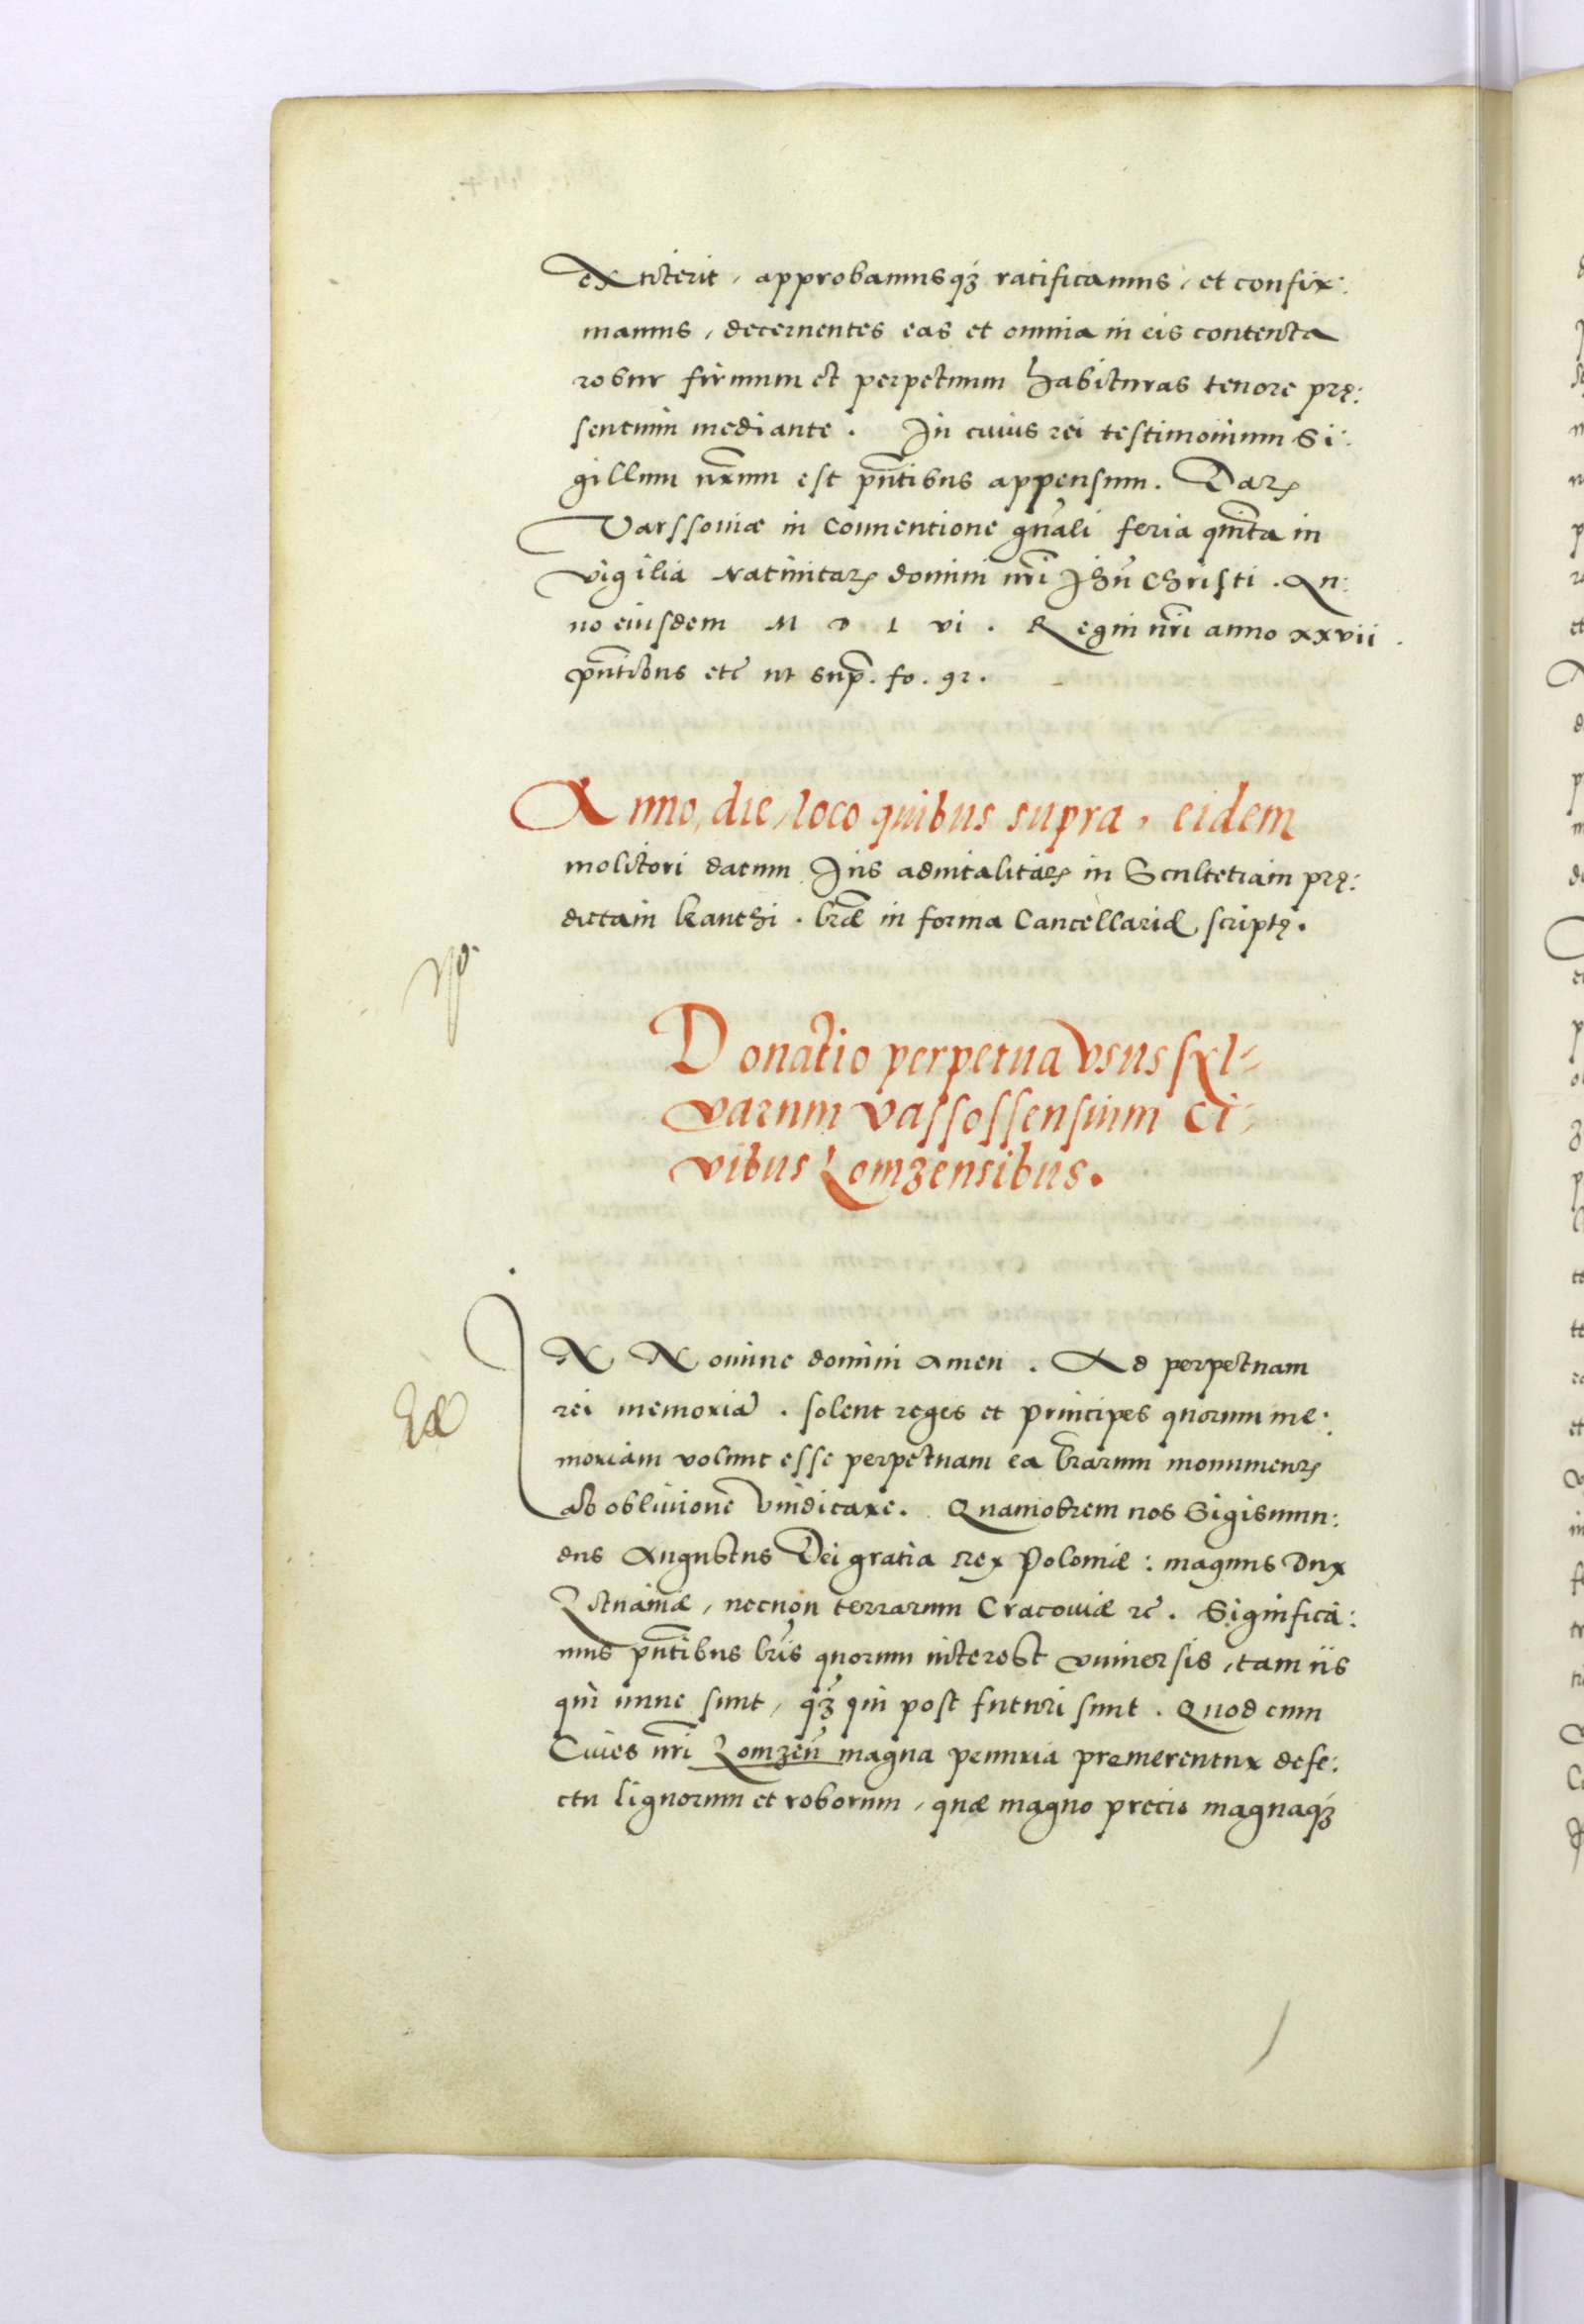 extiterit, approbamusqꝫ ratificamus, et confir:
mamus, decernentes eas et omnia in eis contenta
robur firmum et perpetuum habituras tenore prę:
sentium mediante. In cuius rei testimonium Si:
gillum nr̄um est pn̄tibus appensum. Datꝝ
Varssouiæ in Conuentione gn̄ali feria quinta in
vigilia Natiuitatꝝ domini nr̄i Jhū Christi. An:
no eiusdem M D L vi. Regni nr̄i anno xxvii.
pn̄tibus etc̄ ut sup̄. fo. 92.
Anno, die, loco quibus supra, eidem
molitori datum Jus aduitalitatꝝ in Scultetiam prę:
dictam Kanthi. lr̄æ in forma Cancellariæ scriptę.
Donatio perpetua vsus syl-
varum vassossensium Ci-
vibus Lomzensibus.
IN Nomine domini amen. Ad perpetuam
rei memoriā. solent reges et principes quorum me:
moriam volunt esse perpetuam ea lr̄arum monumentꝝ
ab obliuione vindicare. Quamobrem nos Sigismun:
dus Augustus Dei gratia Rex Poloniæ: magnus Dux
Lituaniæ, necnon terrarum Cracouiæ ꝛc̄. Significa:
mus pn̄tibus lr̄is quorum interest vniuersis, tam iis
qui nunc sunt, qꝫ qui post futuri sunt. Quod cum
Ciues nr̄i Lomzen̄ magna penuria premerentur defe:
ctu lignorum et roborum, quæ magno precio magnaqꝫ